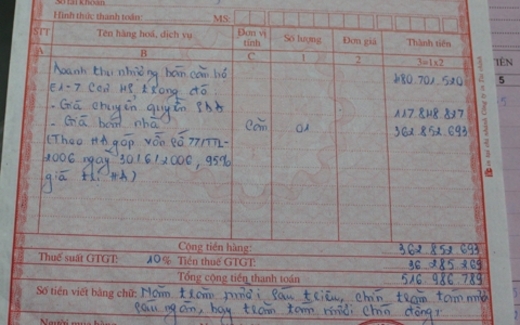 Số tài khoản
Hình thức thanh toán: MS:
STT Tên hàng hoá, dịch vụ Đơn vị tính Số lượng Đơn giá Thành tiền
A B C 1 2 3=1x2
Doanh thu nhượng bán căn hộ 480.701.520
E1-7 trong đó
- Giá chuyển quyền SDĐ 117.848.827
- Giá bán nhà Căn 01 362.852.693
(Theo HĐ góp vốn số 77/TTL-
2006 ngày 30/6/2006, 95%
giá trị HĐ)
Cộng tiền hàng: 362 852 693
Thuế suất GTGT: 10% Tiền thuế GTGT: 36 285 269
Tổng cộng tiền thanh toán 516 986 789
Số tiền viết bằng chữ: Năm trăm mười sáu triệu, chín trăm tám mươi
sáu ngàn, bảy trăm tám mươi chín đồng.
Người mua hàng
TIỀN
5